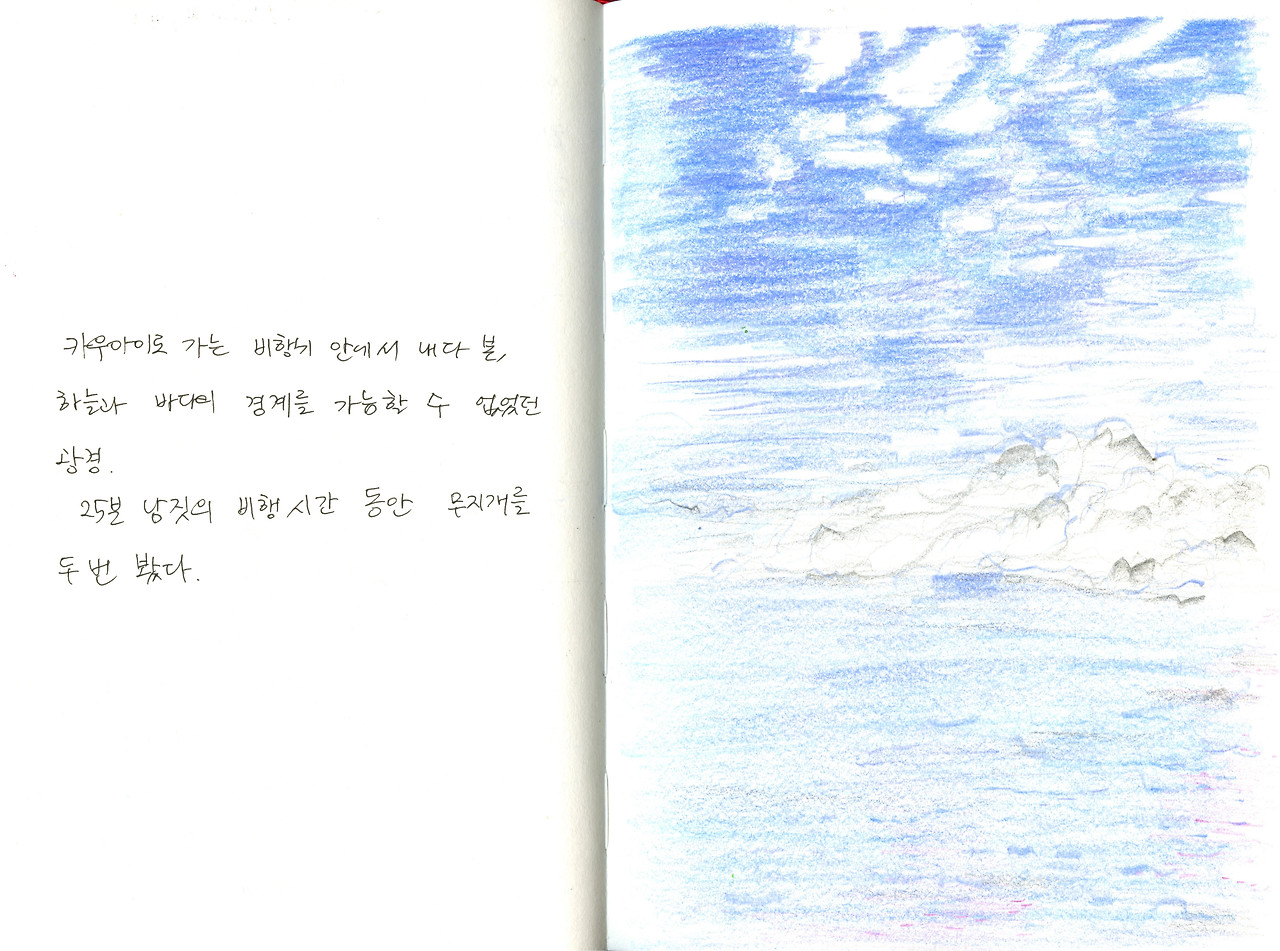 카우아이로 가는 비행기 안에서 내다 볼,
하늘과 바다의 경계를 가능할 수 없었던
광경.
25분 남짓의 비행시간 동안 무지개를
두 번 봤다.